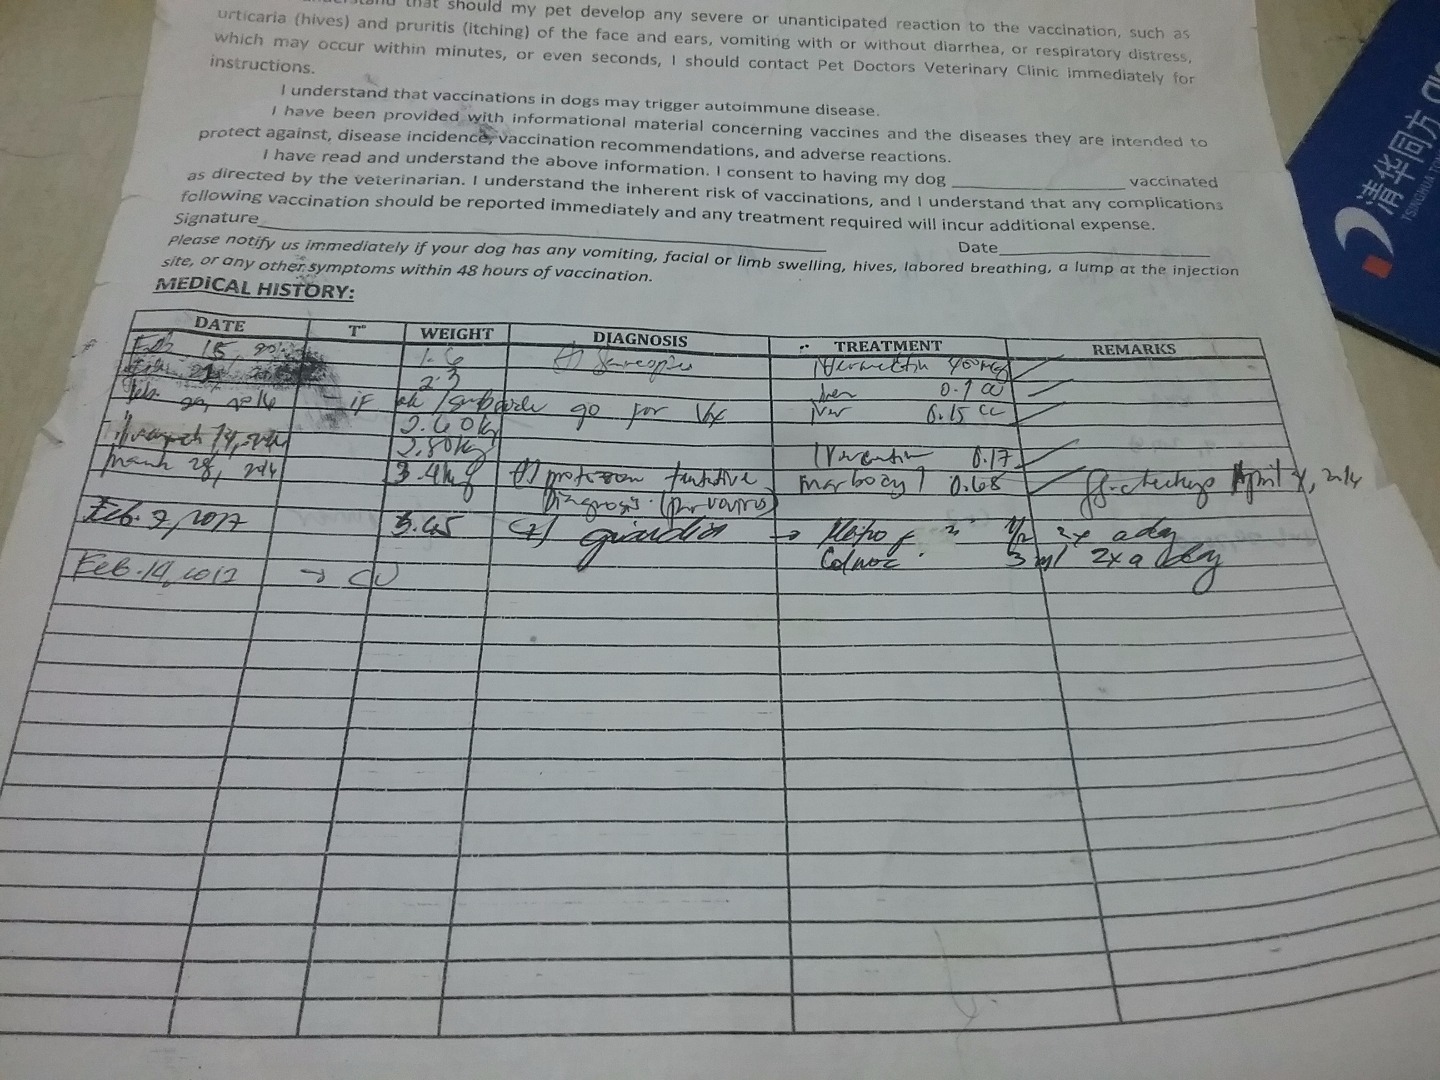 that should my pet develop any severe or unanticipated reaction to the vaccination, such as
urticaria (hives) and pruritis (itching) of the face and ears, vomiting with or without diarrhea, or respiratory distress,
which may occur within minutes, or even seconds, I should contact Pet Doctors Veterinary Clinic immediately for
instructions.
I understand that vaccinations in dogs may trigger autoimmune disease.
I have been provided with informational material concerning vaccines and the diseases they are intended to
protect against, disease incidence, vaccination recommendations, and adverse reactions.
I have read and understand the above information. I consent to having my dog ____________________ vaccinated
as directed by the veterinarian. I understand the inherent risk of vaccinations, and I understand that any complications
following vaccination should be reported immediately and any treatment required will incur additional expense.
Signature____________________ Date____________________
Please notify us immediately if your dog has any vomiting, facial or limb swelling, hives, labored breathing, a lump at the injection
site, or any other symptoms within 48 hours of vaccination.
MEDICAL HISTORY:
DATE T° WEIGHT DIAGNOSIS TREATMENT REMARKS
Feb 15, 1.6 (+)
2.3 0.1 cc
Feb. 29, 2016 - if ok go for Vax 0.15 cc
2.60kg
March 14, 2.80kg 0.17
March 28, 3.4kg (+) tentative 0.68 April
Diagnosis
Feb. 7, 2017 3.45 (+) giardia → 1/2 2x a day
3 ml 2x a day
Feb. 14, 2017 →
清华同方
TSINGHUA